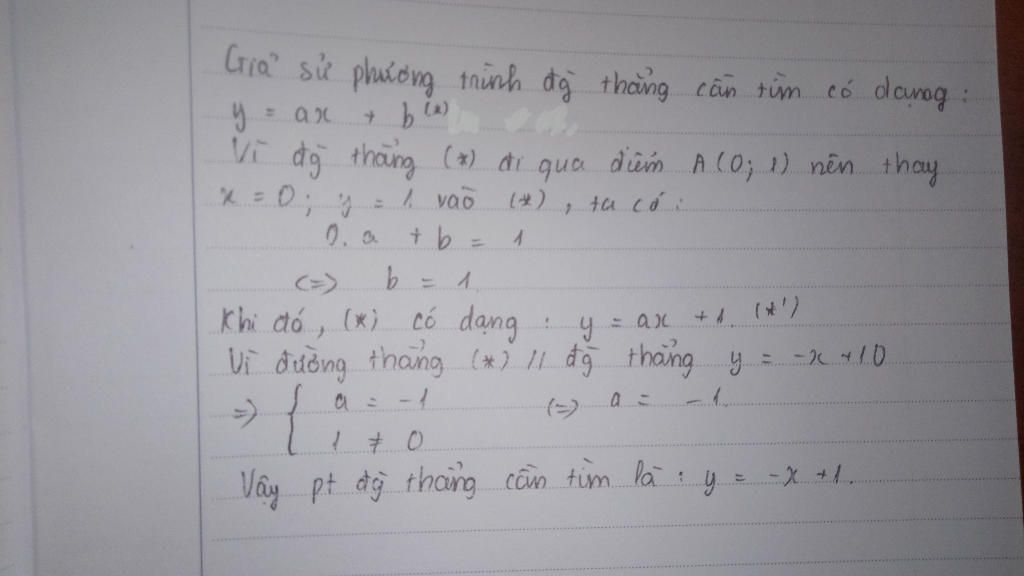 Giả sử phương trình đg̀ thẳng cần tìm có dạng :
y = ax + b (*)
Vì đg̀ thẳng (*) đi qua điểm A(0; 1) nên thay
x = 0; y = 1 vào (*), ta có :
0. a + b = 1
<=> b = 1.
Khi đó, (*) có dạng : y = ax + 1. (*')
Vì đường thẳng (*) // đg̀ thẳng y = -x + 10
=> { a = -1 <=> a = -1.
1 ≠ 0
Vậy pt đg̀ thẳng cần tìm là : y = -x + 1.